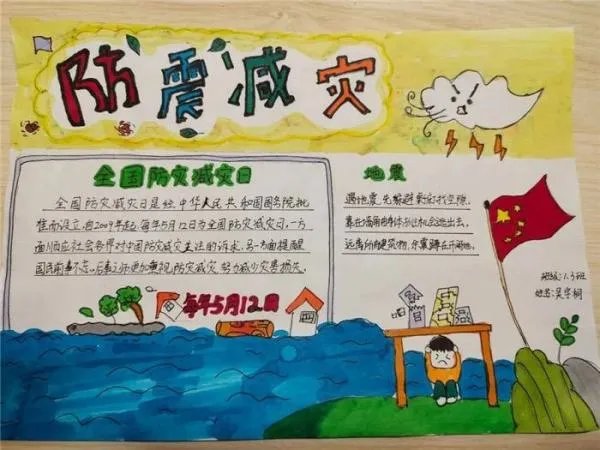 防震减灾
全国防灾减灾日
全国防灾减灾日是经中华人民共和国国务院批
准而设立,自2009年起,每年5月12日为全国防灾减灾日,一方
面顺应社会各界对全国防灾减灾关注的诉求,另一方面提醒
国民前事不忘、后事之师更加重视防灾减灾,努力减少灾害损失。
每年5月12日
地震
遇地震,先躲避,
靠在墙角 机会逃出去,
远离 建筑物,
班级:1.3班
姓名:吴宇桐